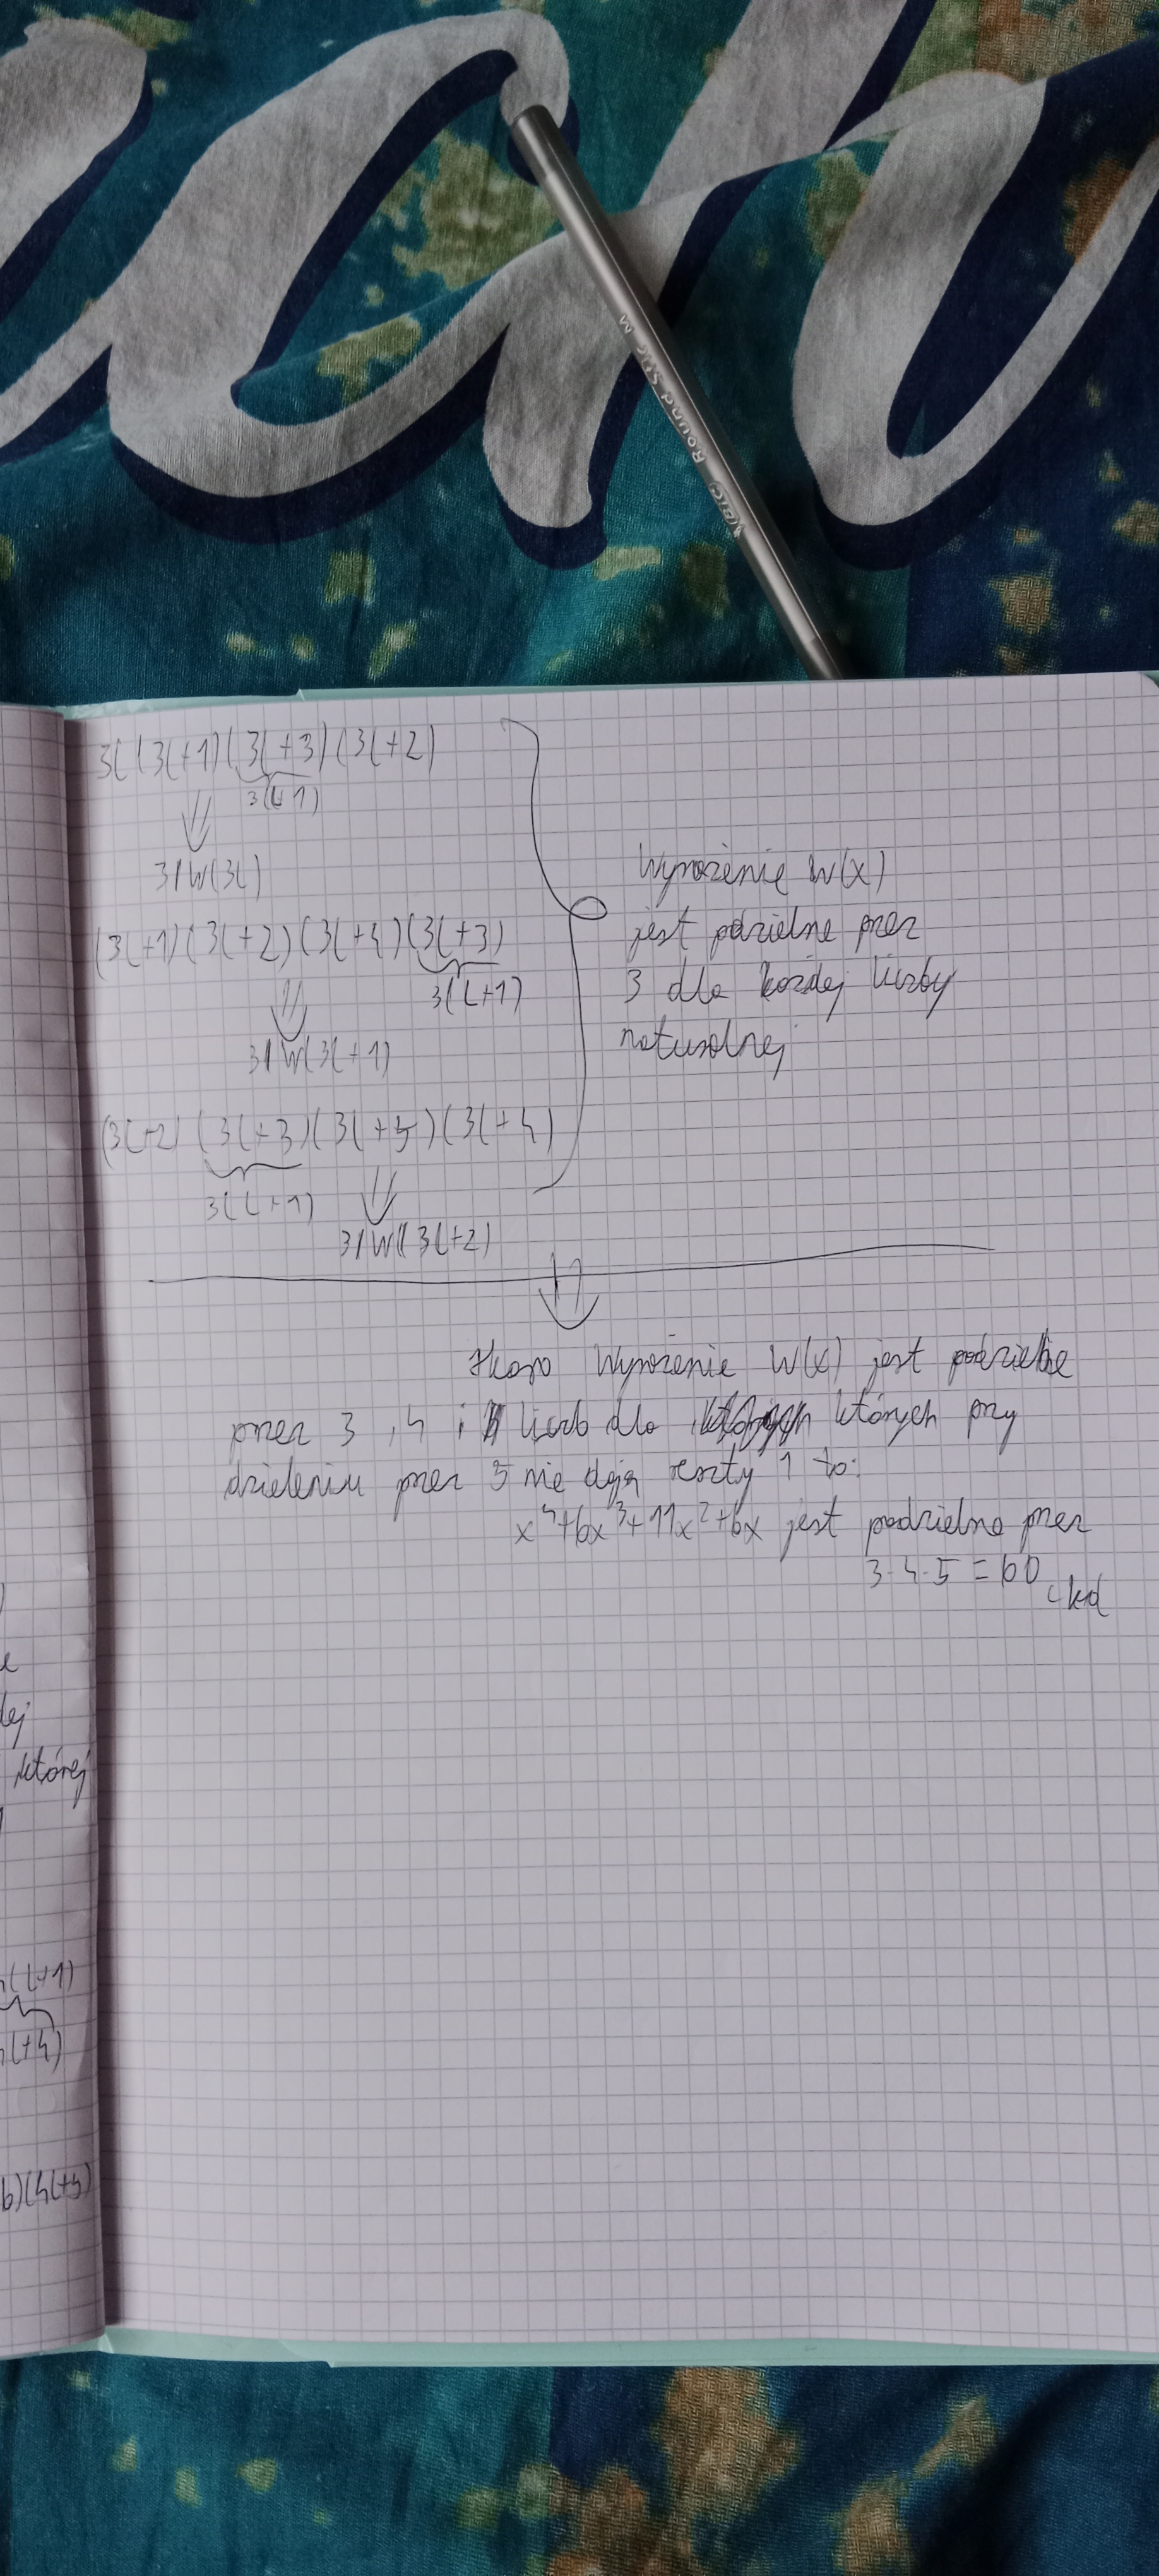 BIC Round Stic M
3l(3l+1)(3l+3)(3l+2)
3(l+1)
⇓
3|W(3l)
(3l+1)(3l+2)(3l+4)(3l+3)
3(l+1)
⇓
3|W(3l+1)
(3l+2)(3l+3)(3l+5)(3l+4)
3(l+1)
⇓
3|W(3l+2)
Wyrażenie W(x)
jest podzielne przez
3 dla każdej liczby
naturalnej
⇓
Skoro Wyrażenie W(x) jest podzielne
przez 3, 4 i liczb dla których przy
dzieleniu przez 5 nie dają reszty 1 to:
x⁴+6x³+11x²+6x jest podzielne przez
3·4·5=60
ckd
lej
której
(l+1)
(l+4)
6)(4l+5)